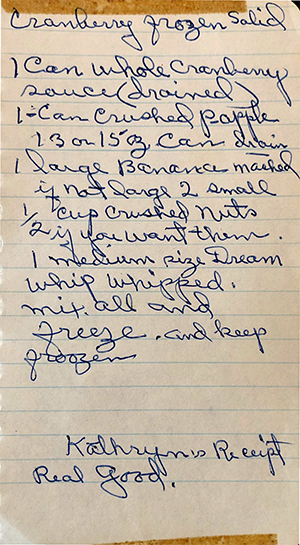 Cranberry frozen Salid
1 Can whole Cranberry
sauce (drained)
1 - Can Crushed papple
13 or 15 oz Can drain
1 large Banance mashed
if not large 2 small
1/2 cup crushed nuts
if you want them.
1 medium size Dream
whip whipped.
mix all and
freeze. and keep
froozen
Kathryn's Receipt
Real Good.